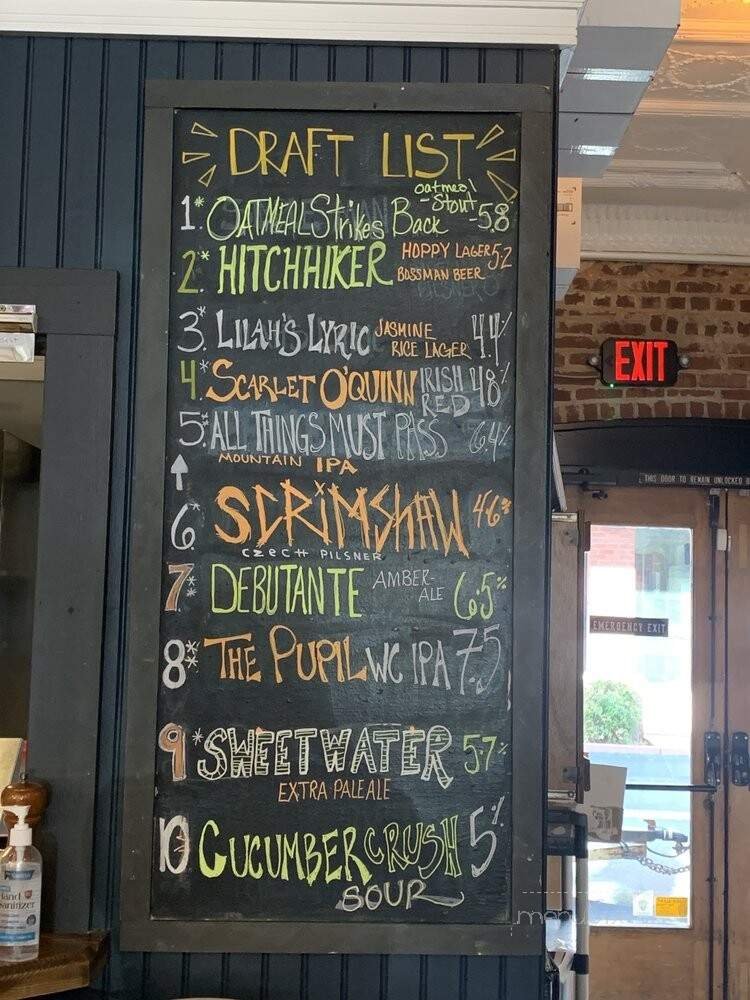 DRAFT LIST
1* OATMEAL Strikes Back oatmeal -Stout -5.8
2.* HITCHHIKER HOPPY LAGER 5.2
BOSSMAN BEER
3.* LILAH'S LYRIC JASMINE RICE LAGER 4.4%
4.* SCARLET O'QUINN IRISH RED 4.8%
5.* ALL THINGS MUST PASS 6.4%
MOUNTAIN IPA
6.* SCRIMSHAW 4.6%
CZECH PILSNER
7.** DEBUTANTE AMBER-ALE 6.5%
8.** THE PUPIL WC IPA 7.5
9* SWEETWATER 5.7%
EXTRA PALE ALE
10 CUCUMBER CRUSH 5%
SOUR
EXIT
THIS DOOR TO REMAIN UNLOCKED
EMERGENCY EXIT
Hand
sanitizer